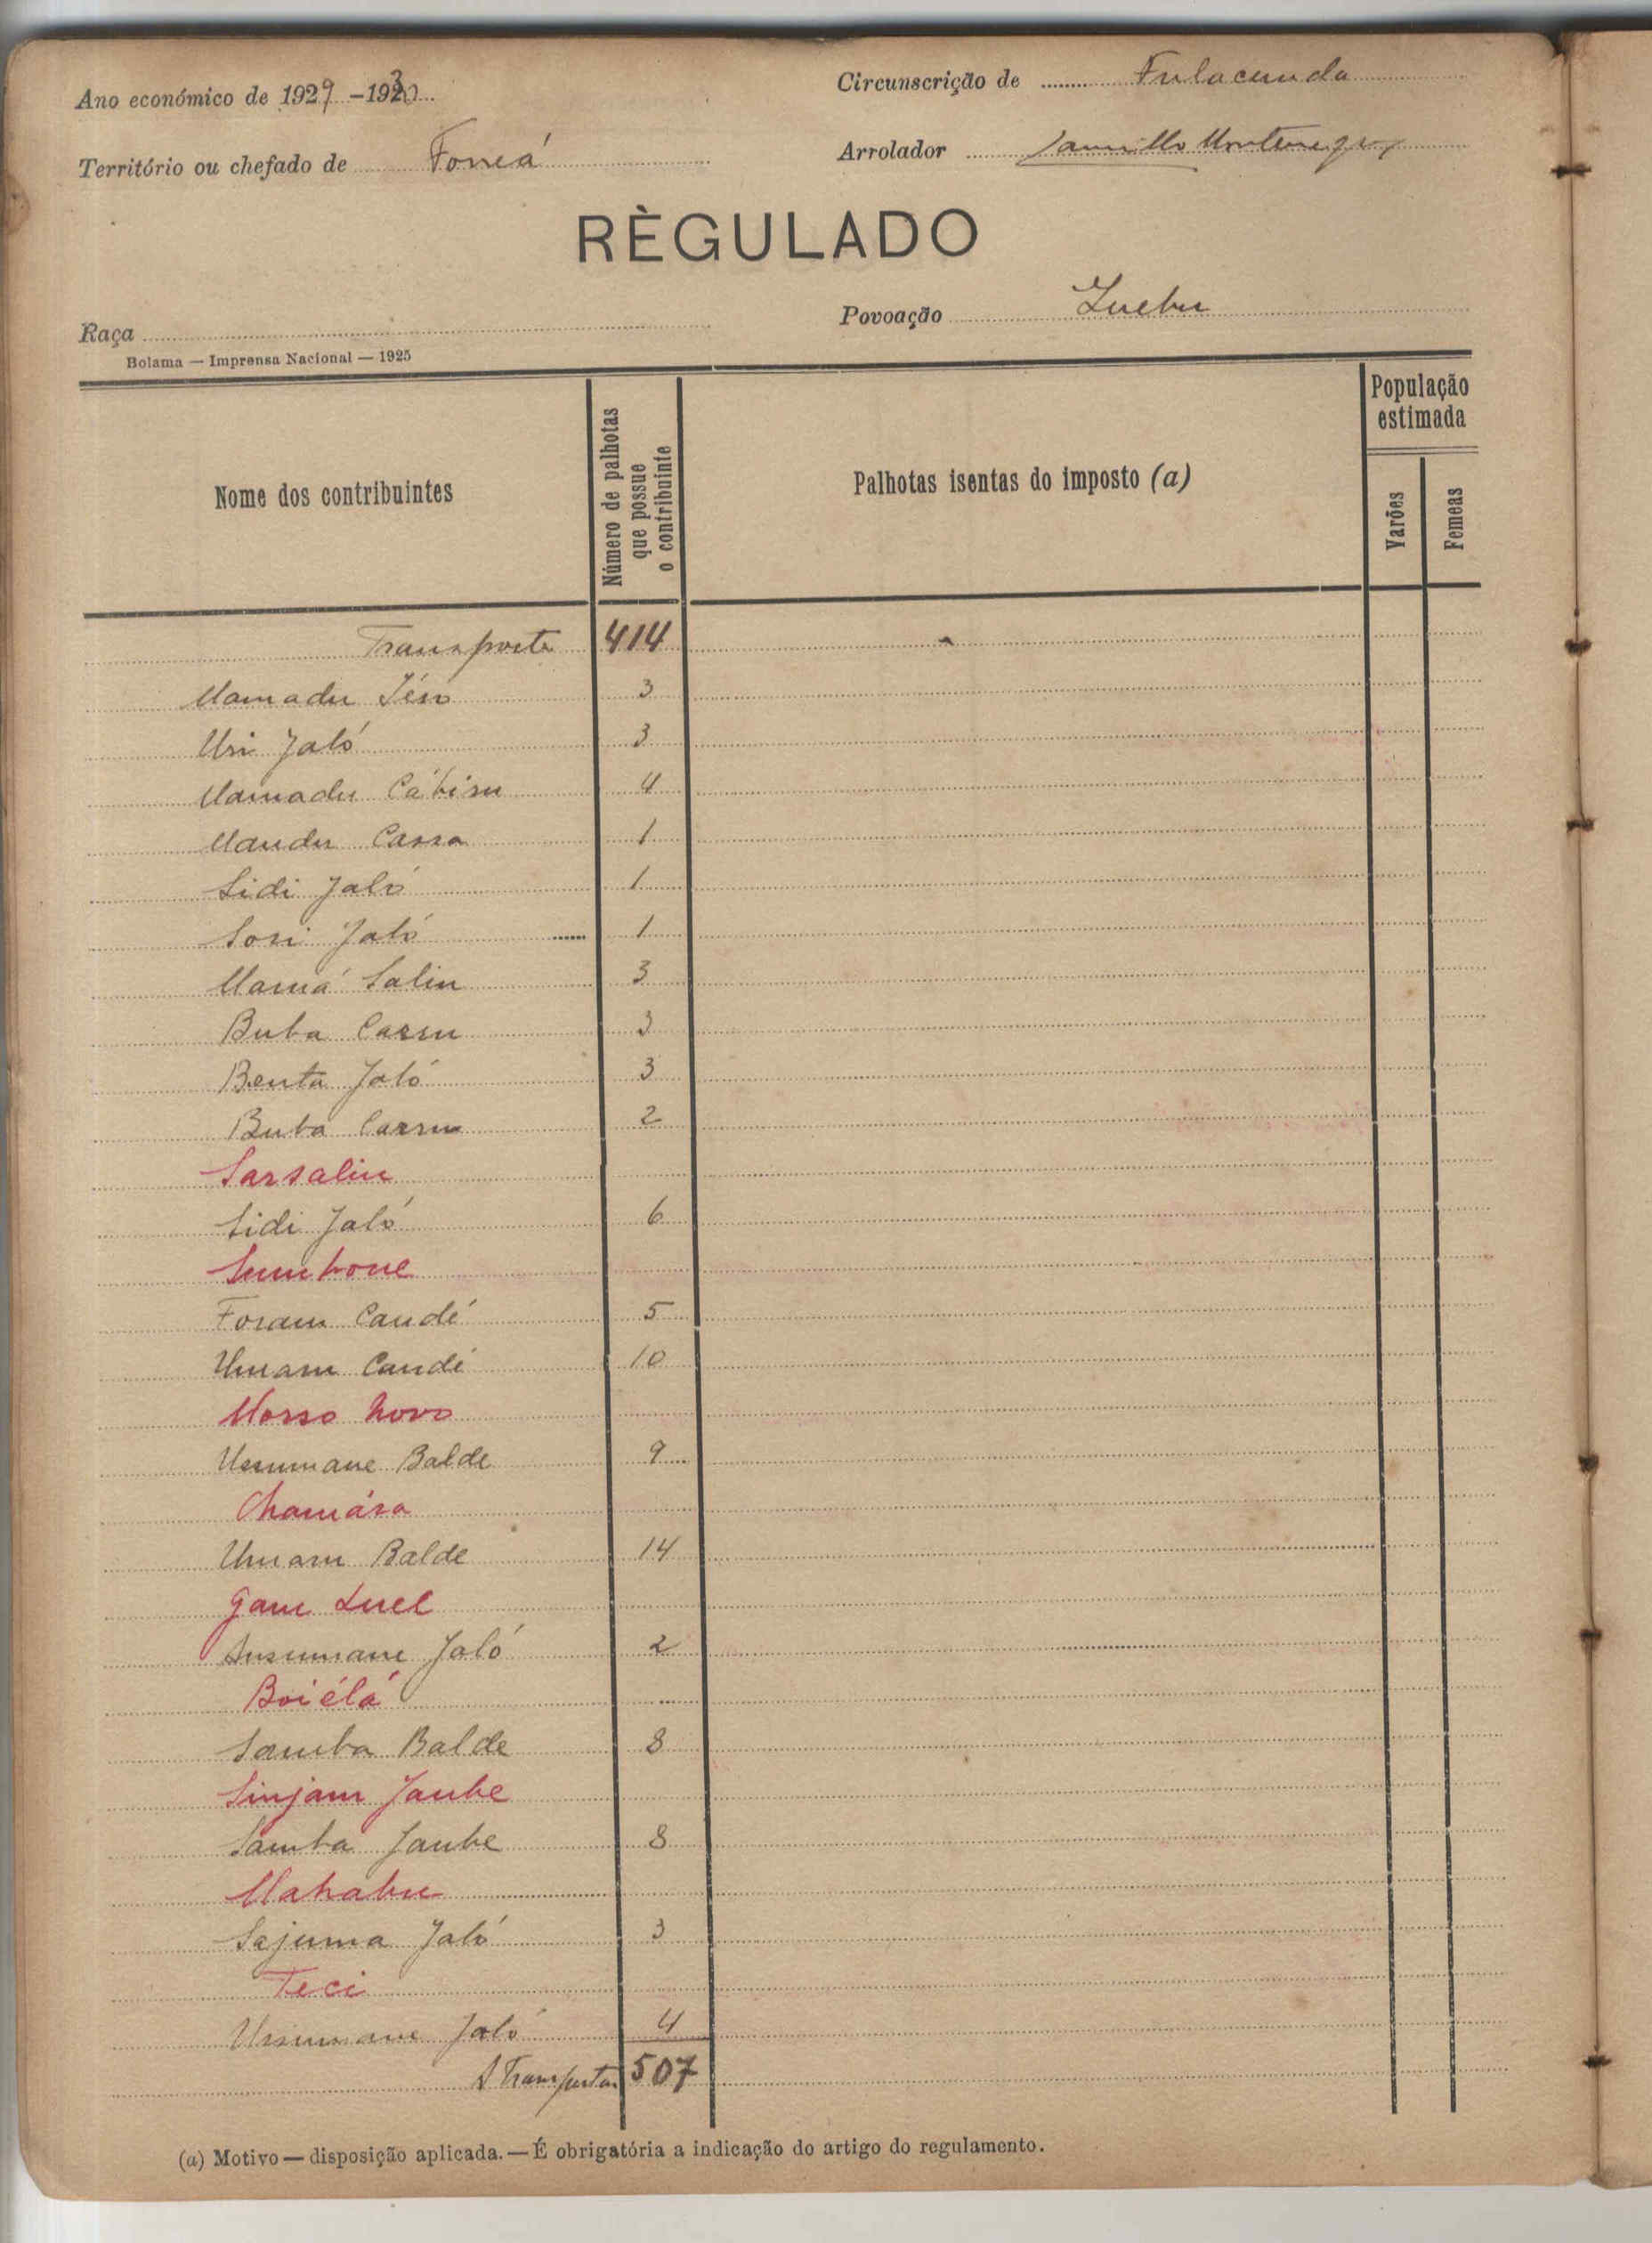 Ano económico de 1929-1930
Circunscrição de Fulacunda
Território ou chefado de Forreá
Arrolador Camillo Montenegro
RÈGULADO
Raça
Povoação Luebu
Bolama — Imprensa Nacional — 1925
Nome dos contribuintes
Número de palhotas que possue o contribuinte
Palhotas isentas do imposto (a)
População estimada
Varões
Femeas
Transporte 414
Mamadu 3
Uri Jaló 3
Mamadu 4
Mandu Cassa 1
Sidi Jaló 1
Sori Jaló 1
Mamá Saliu 3
Buba 3
Benta Jaló 3
Buba 2
Sarsaliu
Sidi Jaló 6
Foram Candé 5
Umaru Candé 10
Morso novo
Ussumane Balde 9
Chamára
Umaru Balde 14
Gam Luel
Sussumane Jaló 2
Boiélá
Samba Balde 8
Sinjam Jaube
Samba Jaube 8
Mahabu
Sajuma Jaló 3
Teci
Ussumane Jaló 4
A Transportar 507
(a) Motivo — disposição aplicada. — É obrigatória a indicação do artigo do regulamento.